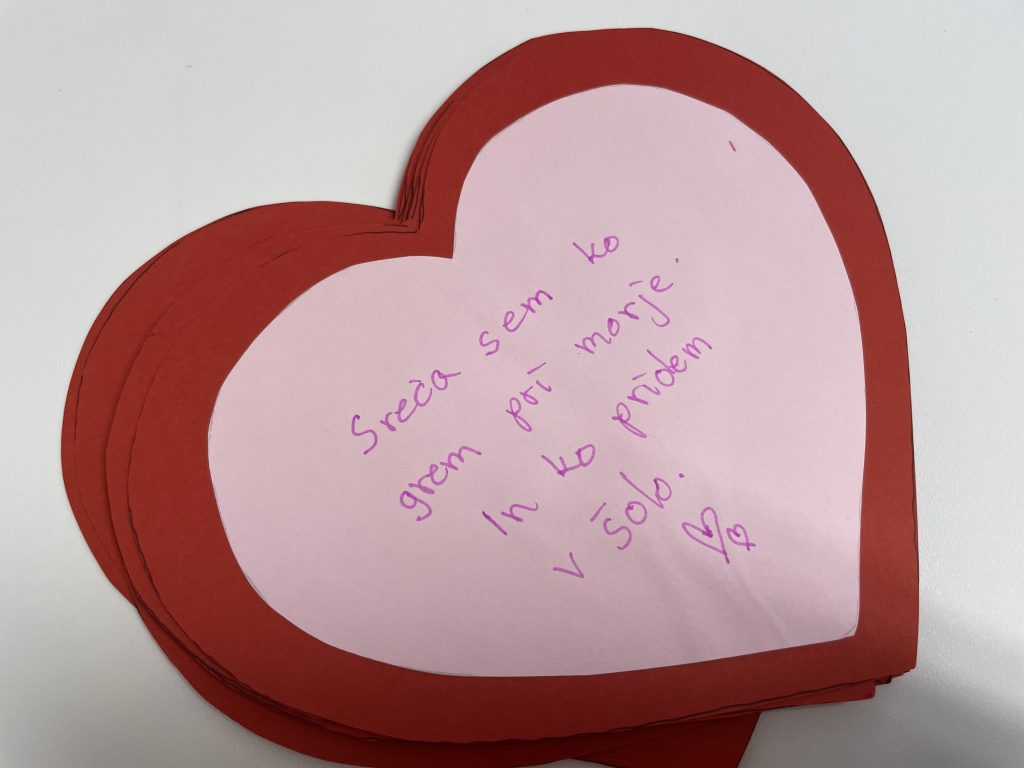 Sreča sem ko
grem pri morje.
In ko pridem
v šolo.